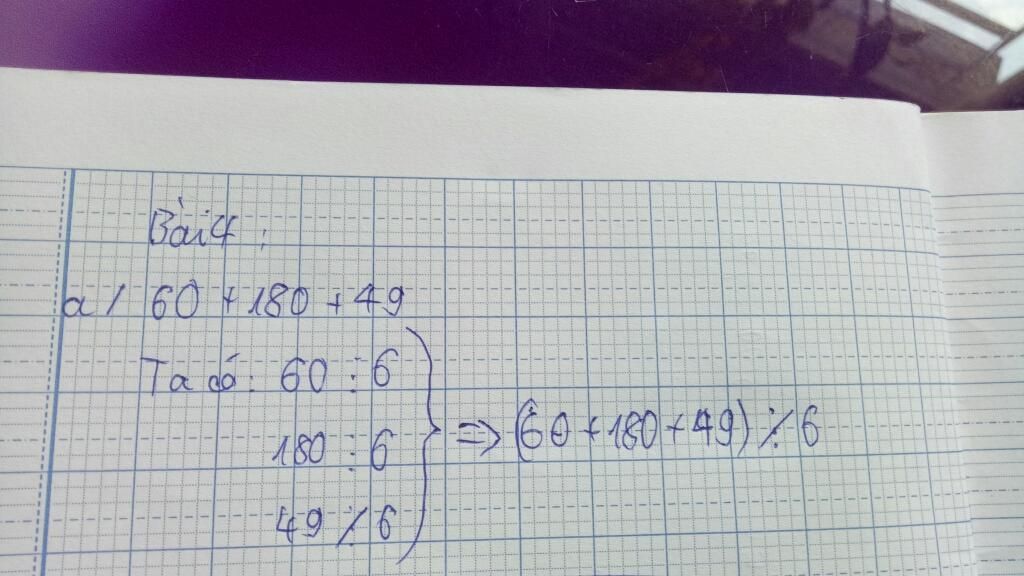 Bài 4 :
a / 60 + 180 + 49
Ta có : 60 ⋮ 6
180 ⋮ 6 => (60 + 180 + 49) ⋮̸ 6
49 ⋮̸ 6